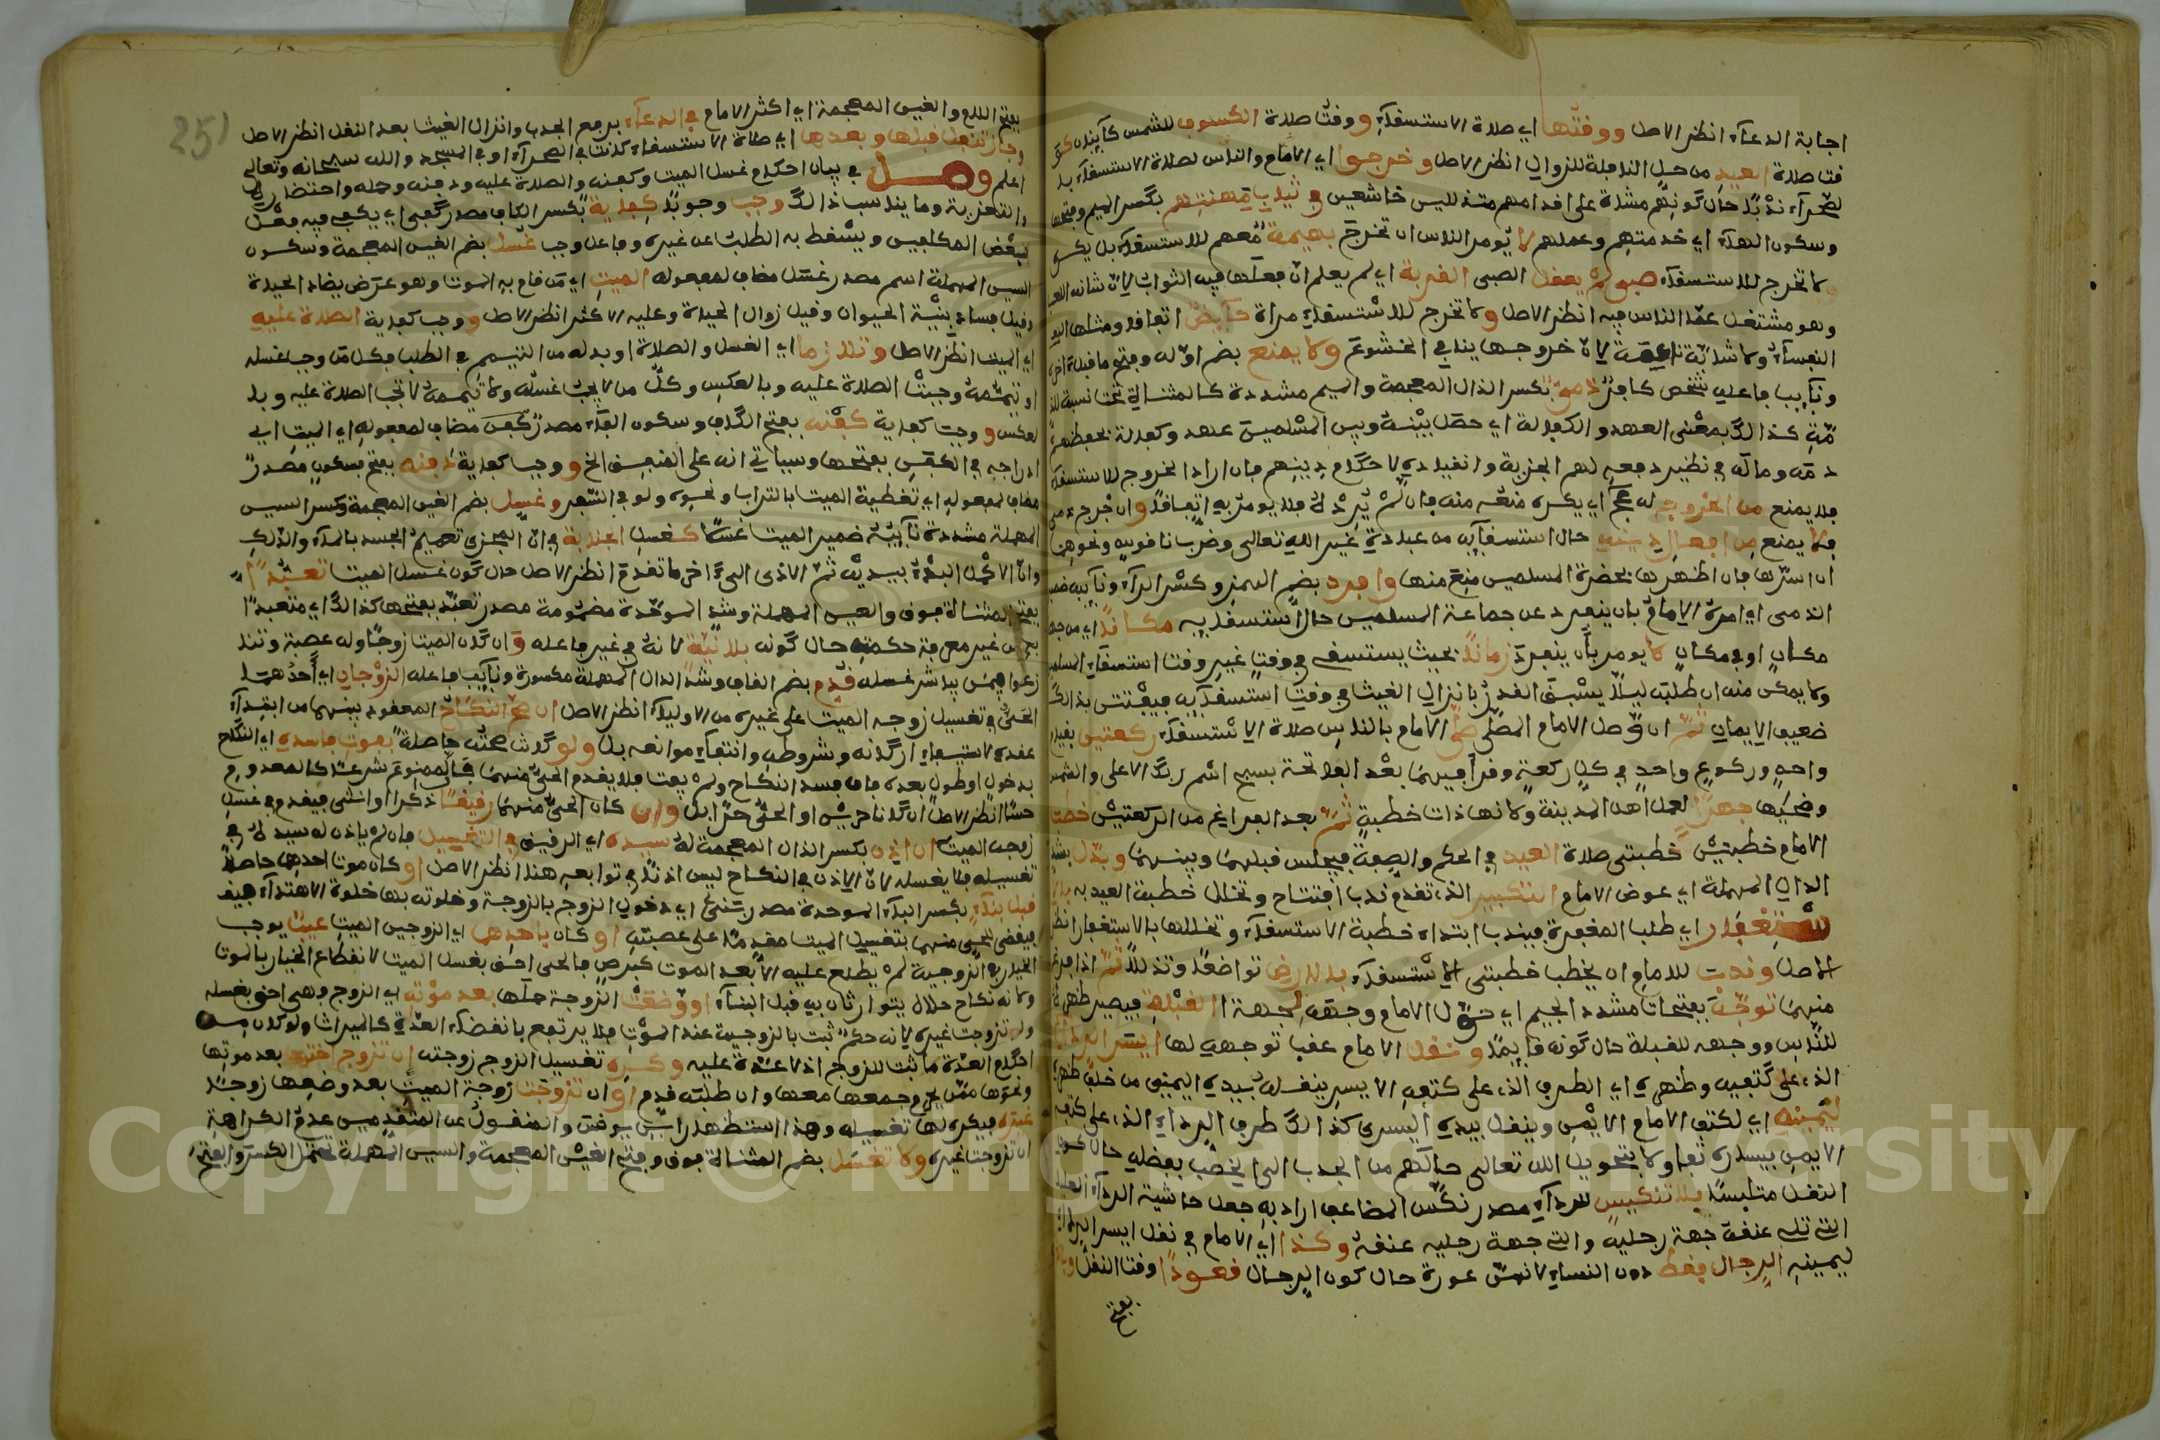 اجابة الدعآء انظر الاصل ووقتها اي صلاة الاستسفآء ووقت صلاة الكسوف للشمس كآين كو
فت صلاة العيد من حل النافلة للزوال انظر الاصل وخرجوا اي الامام والناس لصلاة الاستسفآء
لصحرآء ندبًا حال كونهم مشاة على اقدامهم متذللين خاشعين في ثياب مهنتهم بكسر الميم وفتحها
وسكون الهآء اي خدمتهم وعملهم لا يومر الناس ان تخرج بهيمة معهم للاستسفآء بل يكره
ولا تخرج للاستسفآء صبي لم يعفل الصبي القربة اي لم يعلم ان فعلها فيه الثواب لان شانه
وهو مشتغل عند الناس فيه انظر الاصل ولا تخرج للاستسفاء مراة حآيض اتفاقا ومثلها
النفسآء ولا شابة لان خروجها ينافي الخشوع ولا يمنع بضم اوله وفتح ما قبل اخره
ونآيب فاعله شخص كافر ذمي بكسر الذال المعجمة والميم مشددة كالمثناة تحت نسبة
مة كذالك بمعنى العهد والكفالة اي حصل بينه وبين المسلمين عهد وكفالة بحفظهم
دمه وماله في نظير دفعه لهم الجزية وانفياده لاحكام دينهم فان اراد الخروج للاستسفآء
فلا يمنع من الخروج له اي يكره منعه منه فان لم يرده فلا يومر به اتفاقا وان خرج
فلا يمنع من افعال دينه حال استسفآيه من عبادة غير الله تعالى وضرب نافوس ونحوهن
ان استرها فان اظهرها بحضرة المسلمين منع منها وافرد بضم الهمز وكسر الرآء ونآيبه
الذمي اي امره الامام بان ينفرد عن جماعة المسلمين حال استسفآيه مكانا اي من
مكان او في مكان لا يومر بان ينفرد زمانا بحيث يستسفي في وقت غير وقت استسفاء
ولا يمكن منه ان طلبه ليلا يسبق القدر بانزال الغيث في وقت استسفآيه فيفتتن بذالك
ضعيف الايمان ثم ان وصل الامام المصلى صلى الامام بالناس صلاة الاستسفآء ركعتين
واحد وركوع واحد في كل ركعة وقرا فيهما بعد الفاتحة بسبح اسم ربك الاعلى والشمس
وضحيها جهرا لعمل اهل المدينة ولانها ذات خطبة ثم بعد الفراغ من الركعتين خطب
الامام خطبتين كخطبتي صلاة العيد في الحكم والصفة فيجلس قبلهما وبينهما وبدل بشد
الدال المهملة اي عوض الامام التكبير الذي تقدم ندب افتتاح وتخلل خطبة العيد به
بالاستغفار اي طلب المغفرة فيندب ابتداء خطبة الاستسفآء وتخللها بالاستغفار انظر
الاصل وندب للامام ان يخطب خطبتي الاستسفآء بالارض تواضعا وتذللا ثم اذا فرغ
منهما توجه بفتحات مشدد الجيم اي حول الامام وجهه لجهة القبلة فيصير ظهره
للناس ووجهه للقبلة حال كونه فآيمًا ونقل الامام عقب توجهه لها ايسر
الذي على كتفيه وظهره اي الطرف الذي على كتفه الايسر ينقله بيده اليمنى من خلف ظهره
ليمينه اي لكتف الامام الايمن وينقل بيده اليسرى كذالك طرف الرداء الذي على كتفه
الايمن بيساره تفاولا بتحويل الله تعالى حالهم من الجدب الى الخصب بفضله حال كون
النقل متلبسا بلا تنكيس للردآء مصدر نكس المضاعف اراد به جعل حاشية الردآء
التي تلي عنقه جهة رجليه والتي جهة رجليه عنقه وكذا اي الامام في نقل ايسر
ليمينه الرجال فقط دون النساء لانهن عورة حال كون الرجال قعودًا وقت النقل
بفتح
251
بفتح اللام والغين المعجمة اي اكثر الامام في الدعآء برفع الجدب وانزال الغيث بعد النقل انظر الاصل
وجاز تنفل قبلها وبعدها اي صلاة الاستسفاء كانت في الصحرآء او في المسجد والله سبحانه وتعالى
اعلم وصل في بيان احكام غسل الميت وكفنه والصلاة عليه ودفنه وحمله واحتضاره
والتعزية وما يناسب ذالك وجب وجوبا كفاية بكسر الكاف مصدر كفى اي يكفي فيه فعل
بعض المكلفين ويسقط به الطلب عن غيره وفاعل وجب غسل بضم الغين المعجمة وسكون
السين المهملة اسم مصدر غسل مضاف لمفعوله الميت اي من قام به الموت وهو عرض يضاد الحياة
وقيل فساد بنية الحيوان وقيل زوال الحياة وعليه الاكثر انظر الاصل ووجب كفاية الصلاة عليه
اي الميت انظر الاصل وتلازما اي الغسل والصلاة او بدله من التيمم في الطلب فكل من وجب غسله
او تيممه وجبت الصلاة عليه وبالعكس وكل من لا يجب غسله ولا تيممه لا تجب الصلاة عليه وبا
لعكس ووجب كفاية كفنه بفتح الكاف وسكون الفآء مصدر كفن مضاف لمفعوله اي الميت اي
ادراجه في الكفن بفتحها وسياتي انه على المنفق الخ ووجب كفاية دفنه بفتح بسكون مصدر
مضاف لمفعوله اي تغطية الميت بالتراب ونحوه ولو في القبر وغسل بضم الغين المعجمة وكسر السين
المهملة مشددة نآيبه ضمير الميت غسلا كغسل الجنابة في ان المجزي تعميم الجسد بالمآء والدلك
وان الاكمل البدء بيديه ثم الاذى الى اخر ما تقدم انظر الاصل حال كون غسل الميت تعبدًا
بفتح المثناة فوق والعين المهملة وشد الموحدة مضمومة مصدر تعبد بفتحها كذالك اي متعبدا
به من غير معرفة حكمته حال كونه بلا نية لانه في غير فاعله وان كان الميت زوجا وله عصبة وتنا
زعوا فيمن يباشر غسله قدم بضم القاف وشد الدال المهملة مكسورة ونآيب فاعله الزوجان اي احدهما
الحي في تغسيل زوجه الميت على غيره من الاوليآء انظر الاصل ان صح النكاح المعقود بينهما من ابتدآء
عقده لاستيفاء اركانه وشروطه وانتفآء موانعه بل ولو كانت صحته حاصلة بفوت فاسده اي النكاح
بدخول او طول بعده فان فسد النكاح ولم يفت فلا يقدم الحي منهما فالممنوع شرعًا كالمعدوم
حسًا انظر الاصل ان كانا حرين او الحي حرًا بل وان كان الحي منهما رقيقًا ذكرا او انثى فيقدم في غسل
زوجه الميت ان اذن بكسر الذال المعجمة له سيده اي الرقيق في التغسيل فان لم ياذن له سيده له في
تغسيله فلا يغسله لان الاذن في النكاح ليس اذنا في توابعه هذا انظر الاصل او كان موت احدهما حاصلا
قبل بنآء بكسر البآء الموحدة مصدر بنى اي دخول الزوج بالزوجة وخلوته بها خلوة الاهتدآء
فيقضى للحي منهما بتغسيل الميت مقدمًا على عصبته او كان باحدهما اي الزوجين الميت عيب يوجب
الخيار في الزوجية لم يطلع عليه الا بعد الموت كبرص فالحي احق بغسل الميت لانقطاع الخيار بالموت
ولانه نكاح حلال يتوارثان به قبل البنآء او وضعت الزوجة حملها بعد موته اي الزوج فهي احق بغسله
ولو تزوجت غيره لانه حكم ثبت بالزوجية عند الموت فلا يرتفع بانقضآء العدة كالميراث ولو كان من
احكام العدة ما ثبت للزوج اذ لا عدة عليه وكره تغسيل الزوج زوجته ان تزوج اختها بعد موتها
ونحوها ممن يحرم جمعها معها وان طلبته قدم او ان تزوجت زوجة الميت بعد وضعها زوجًا
غيره فيكره لها تغسيله وهذا استظهار ابن يونس والمنقول عن المتقدمين عدم الكراهة
ان تزوجت غيره ولا تغسل بضم المثناة فوق وفتح الغين المعجمة والسين المهملة تحتمل الكسر والفتح
Copyright © King Saud University